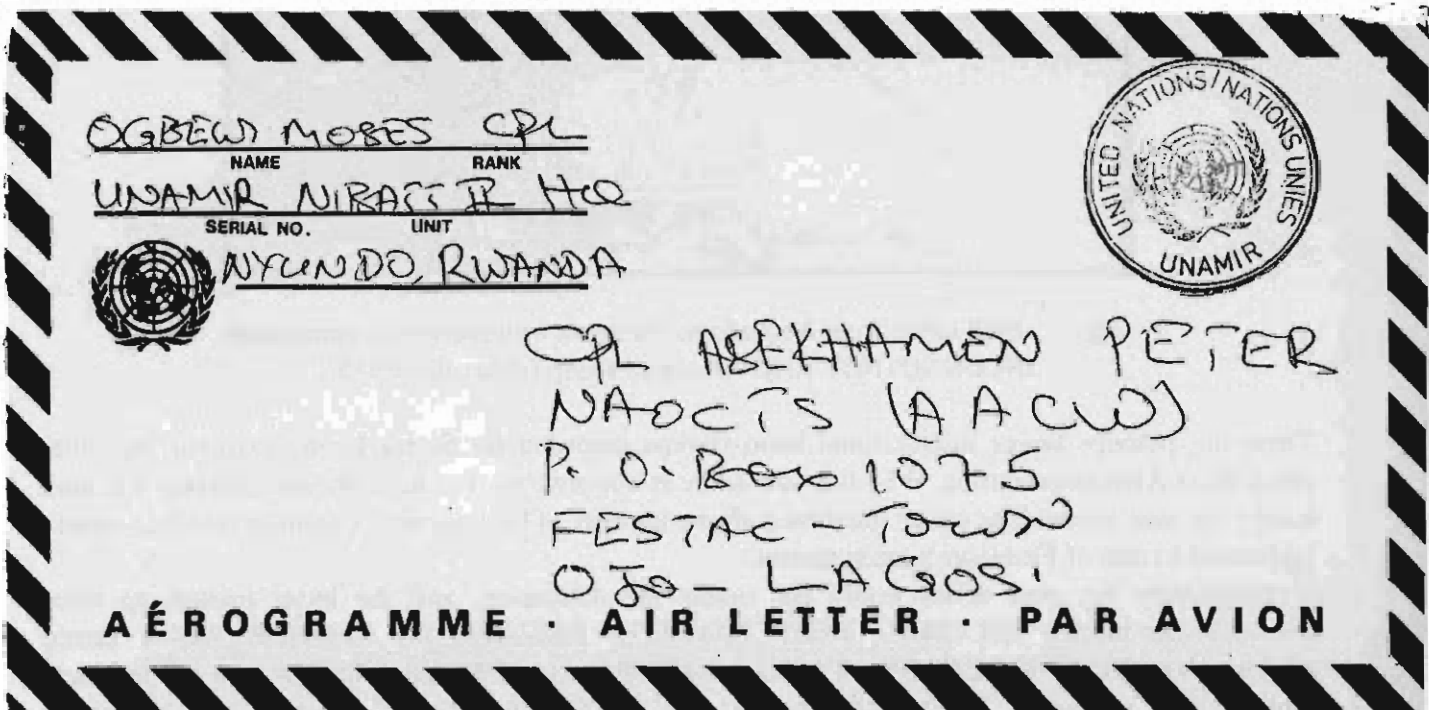 OGBEWI MOSES CPL
NAME RANK
UNAMIR NIBATT II HQ
SERIAL NO. UNIT
NYUNDO, RWANDA
UNITED NATIONS/NATIONS UNIES
UNAMIR
CPL ASEKHAMEN PETER
(AACW)
P. O. Box 1075
FESTAC - TOWN
OJO - LAGOS.
AÉROGRAMME · AIR LETTER · PAR AVION